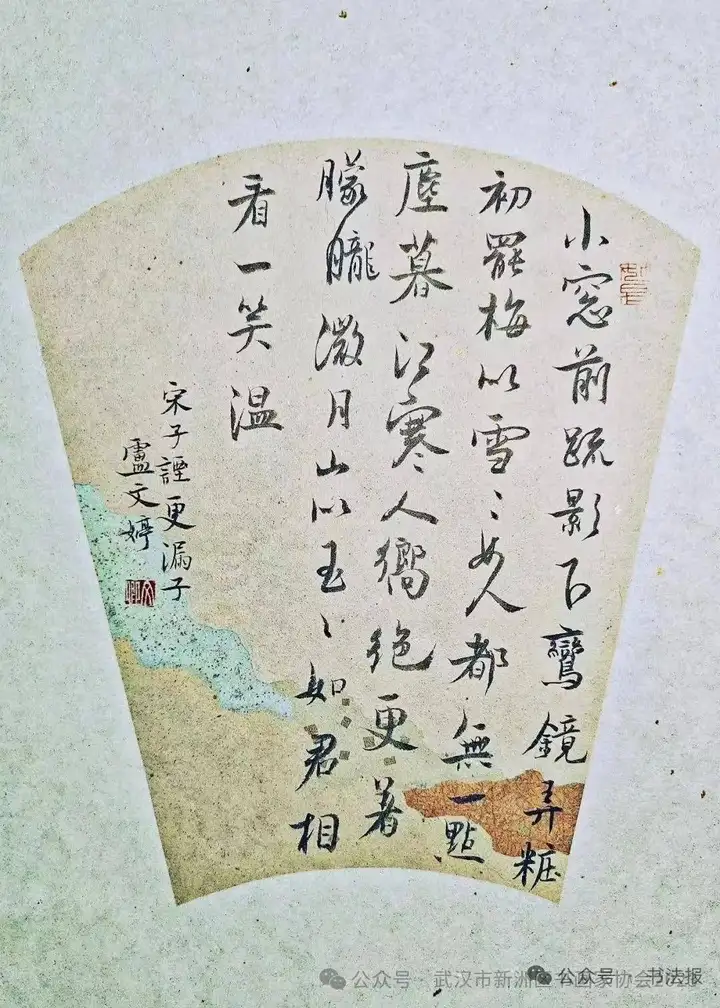 小窓前疏影下鸞鏡弄粧
初罷梅似雪〻如人都無一點
塵暮江寒人嚮絶更著
朦朧微月山似玉〻如君相
看一笑温
宋子諲更漏子
盧文婷
公众号 · 武汉市新洲区书画家协会
公众号 · 书法报